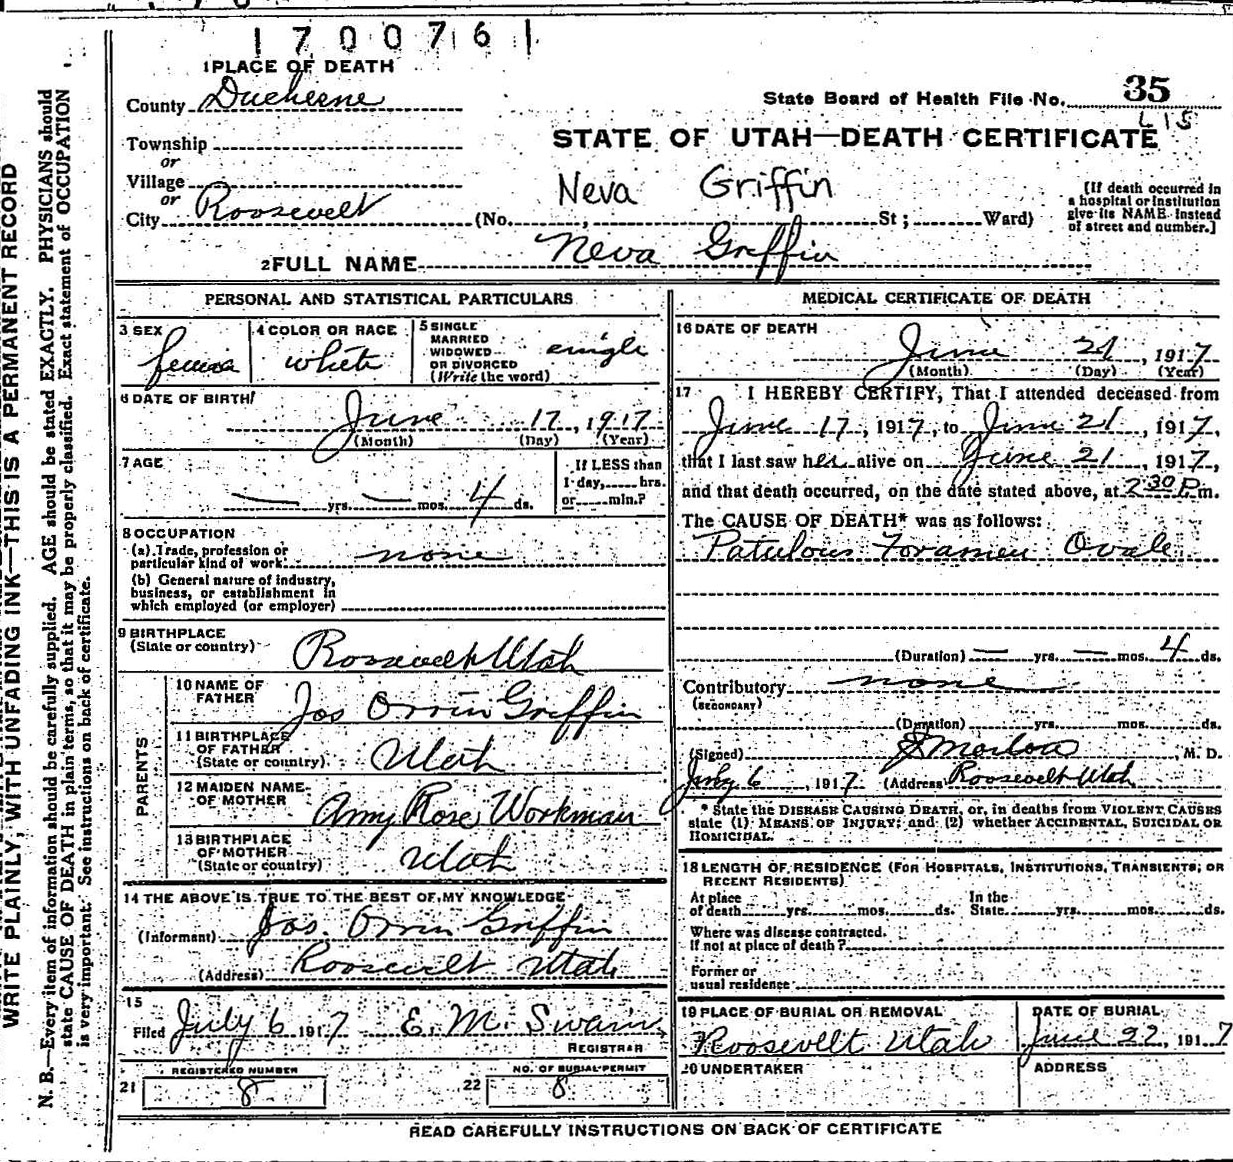 1700761
1 PLACE OF DEATH
County Duchesne
State Board of Health File No. 35
Township
or
Village
or
City Roosevelt
STATE OF UTAH—DEATH CERTIFICATE
Neva Griffin
(No. , St ; Ward)
[If death occurred in
a hospital or institution
give its NAME instead
of street and number.]
2 FULL NAME Neva Griffin
PERSONAL AND STATISTICAL PARTICULARS
3 SEX
4 COLOR OR RACE white
5 SINGLE
MARRIED
WIDOWED
OR DIVORCED
(Write the word)
single
6 DATE OF BIRTH
June 17, 1917
(Month) (Day) (Year)
7 AGE
— yrs. — mos. 4 ds.
If LESS than
1 day, hrs.
or min.?
8 OCCUPATION
(a) Trade, profession or
particular kind of work none
(b) General nature of industry,
business, or establishment in
which employed (or employer)
9 BIRTHPLACE
(State or country) Roosevelt Utah
PARENTS
10 NAME OF
FATHER Jos Orrin Griffin
11 BIRTHPLACE
OF FATHER
(State or country) Utah
12 MAIDEN NAME
OF MOTHER Amy Rose Workman
13 BIRTHPLACE
OF MOTHER
(State or country) Utah
14 THE ABOVE IS TRUE TO THE BEST OF MY KNOWLEDGE
(Informant) Jos. Orrin Griffin
(Address) Roosevelt Utah
15
Filed July 6 1917 E. M. Swain
REGISTRAR
REGISTERED NUMBER
21 8
NO. OF BURIAL PERMIT
22 8
MEDICAL CERTIFICATE OF DEATH
16 DATE OF DEATH
June 21, 1917
(Month) (Day) (Year)
17 I HEREBY CERTIFY, That I attended deceased from
June 17, 1917, to June 21, 1917,
that I last saw her alive on June 21, 1917,
and that death occurred, on the date stated above, at 2 30 P.m.
The CAUSE OF DEATH* was as follows:
Patulous Foramen Ovale
(Duration) — yrs. — mos. 4 ds.
Contributory none
(SECONDARY)
(Duration) yrs. mos. ds.
(Signed) M. D.
July 6, 1917 (Address Roosevelt Utah
* State the DISEASE CAUSING DEATH, or, in deaths from VIOLENT CAUSES
state (1) MEANS OF INJURY; and (2) whether ACCIDENTAL, SUICIDAL OR
HOMICIDAL.
18 LENGTH OF RESIDENCE (FOR HOSPITALS, INSTITUTIONS, TRANSIENTS, OR
RECENT RESIDENTS)
At place
of death yrs. mos. ds.
In the
State yrs. mos. ds.
Where was disease contracted.
If not at place of death?
Former or
usual residence
19 PLACE OF BURIAL OR REMOVAL
Roosevelt Utah
DATE OF BURIAL
June 22, 1917
20 UNDERTAKER
ADDRESS
READ CAREFULLY INSTRUCTIONS ON BACK OF CERTIFICATE
WRITE PLAINLY, WITH UNFADING INK—THIS IS A PERMANENT RECORD
N. B.—Every item of information should be carefully supplied. AGE should be stated EXACTLY. PHYSICIANS should
state CAUSE OF DEATH in plain terms, so that it may be properly classified. Exact statement of OCCUPATION
is very important. See instructions on back of certificate.